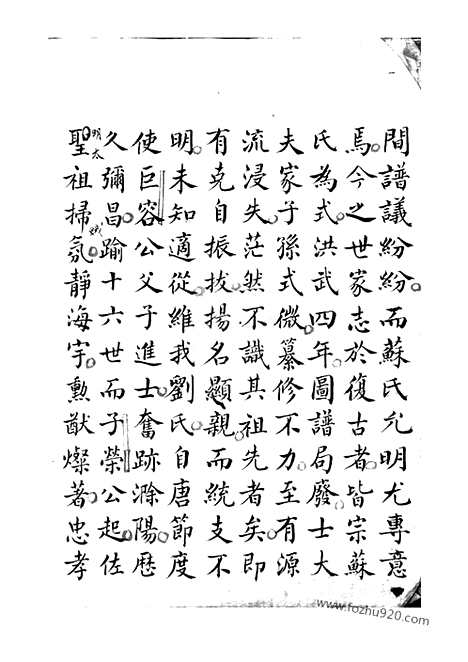 間譜議紛紛。而蘇氏允明尤專意
焉。今之世家志於復古者。皆宗蘇
氏為式。洪武四年。圖譜局廢。士大
夫家子孫式微。纂修不力。至有源
流浸失。茫然不識其祖先者矣。即
有克自振拔。揚名顯親。而統支不
明。未知適從。維我劉氏。自唐節度
使巨容公父子進士。奮跡滁陽。歷
久彌昌。踰十六世而子榮公起。佐
明太
聖祖掃氛。靜海宇。勳猷燦著。忠孝
www.fozhu920.com